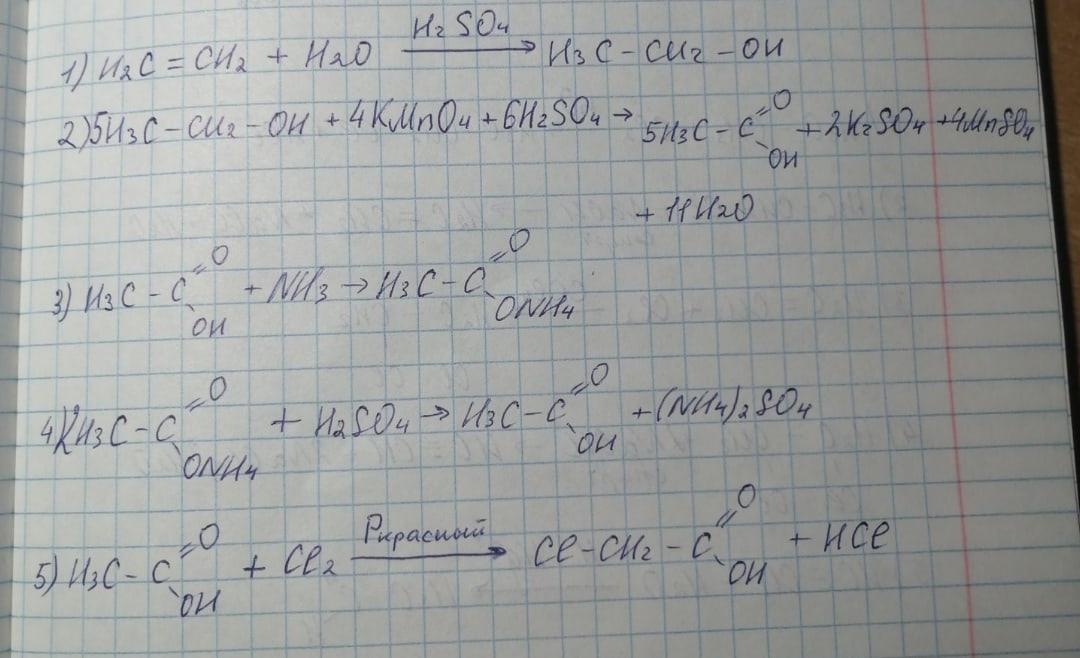 1) H₂C = CH₂ + H₂O —H₂SO₄→ H₃C – CH₂ – OH
2) 5H₃C – CH₂ – OH + 4KMnO₄ + 6H₂SO₄ → 5H₃C – C(=O)–OH + 2K₂SO₄ + 4MnSO₄
+ 11H₂O
3) H₃C – C(=O)–OH + NH₃ → H₃C – C(=O)–ONH₄
4) 2H₃C – C(=O)–ONH₄ + H₂SO₄ → H₃C – C(=O)–OH + (NH₄)₂SO₄
5) H₃C – C(=O)–OH + Cl₂ —Pкрасный→ Cl – CH₂ – C(=O)–OH + HCl